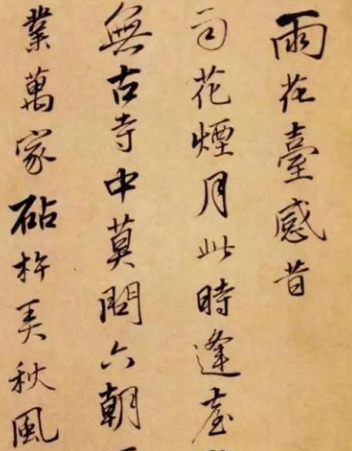 雨花臺感昔
花煙月此時逢臺
無古寺中莫問六朝
業萬家砧杵美秋風